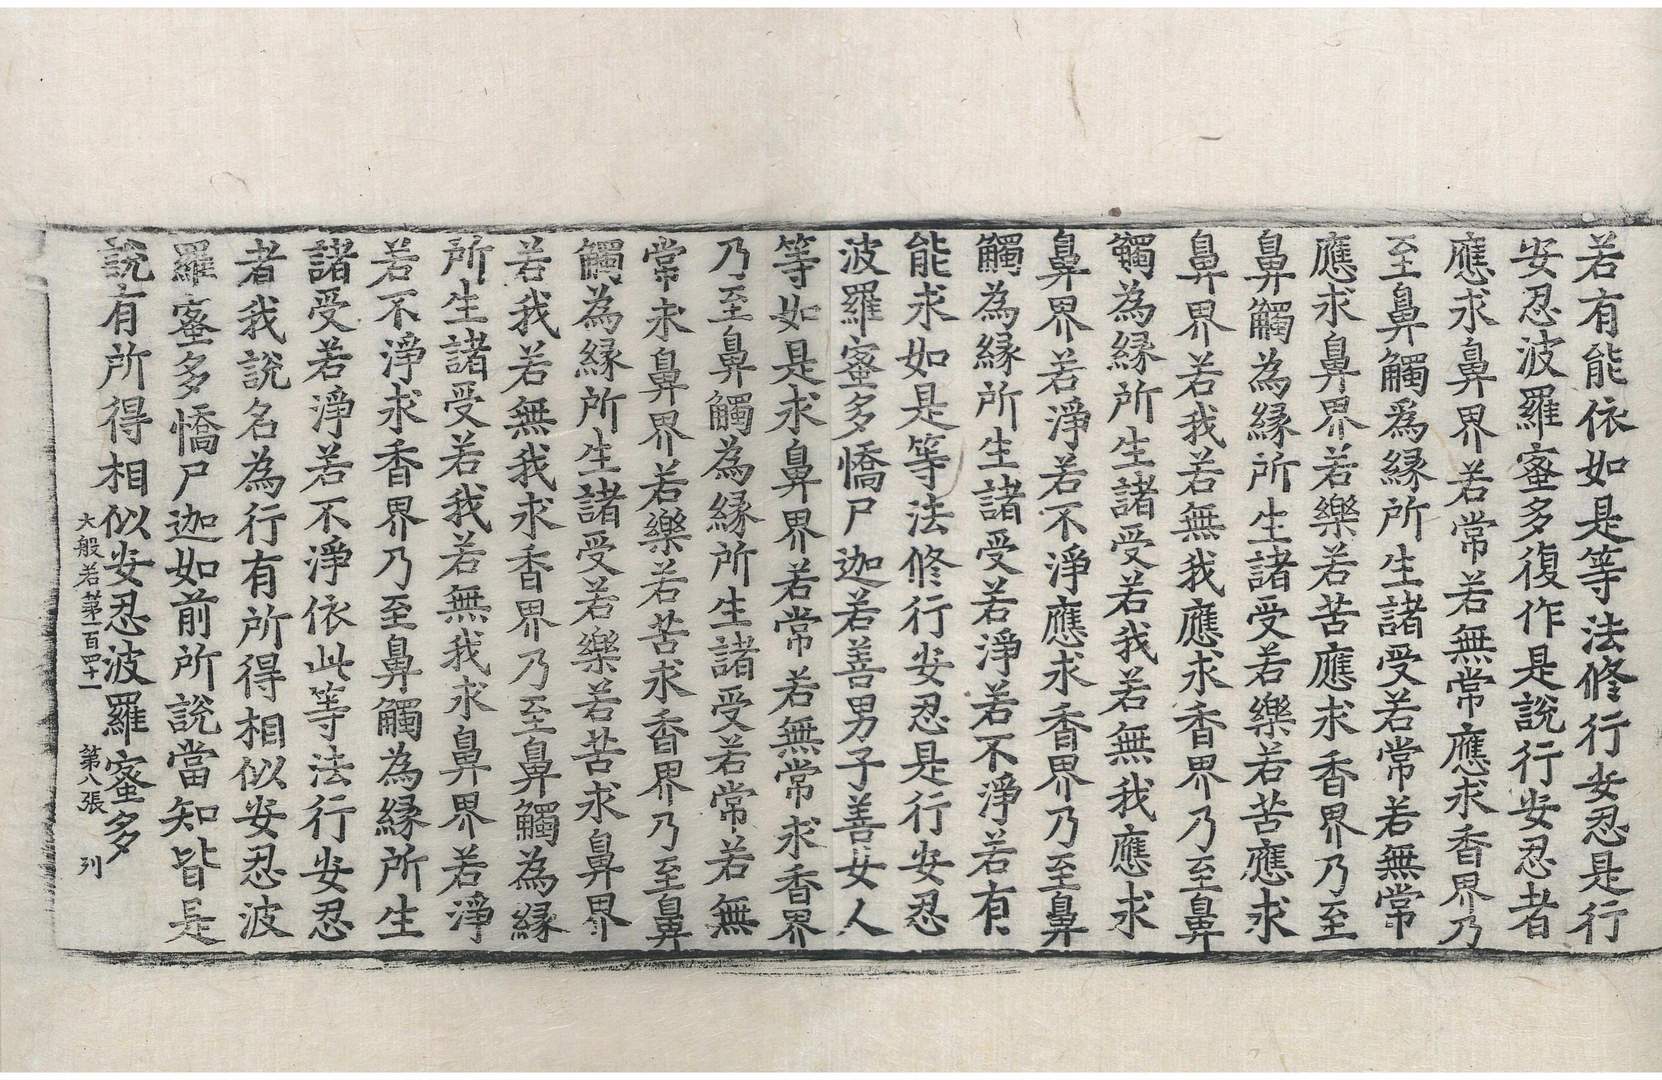 若有能依如是等法修行安忍是行
安忍波羅蜜多復作是說行安忍者
應求鼻界若常若無常應求香界乃
至鼻觸爲縁所生諸受若常若無常
應求鼻界若樂若苦應求香界乃至
鼻觸為縁所生諸受若樂若苦應求
鼻界若我若無我應求香界乃至鼻
觸為縁所生諸受若我若無我應求
鼻界若淨若不淨應求香界乃至鼻
觸為縁所生諸受若淨若不淨若有
能求如是等法修行安忍是行安忍
波羅蜜多憍尸迦若善男子善女人
等如是求鼻界若常若無常求香界
乃至鼻觸為縁所生諸受若常若無
常求鼻界若樂若苦求香界乃至鼻
觸為縁所生諸受若樂若苦求鼻界
若我若無我求香界乃至鼻觸為縁
所生諸受若我若無我求鼻界若淨
若不淨求香界乃至鼻觸為縁所生
諸受若淨若不淨依此等法行安忍
者我說名為行有所得相似安忍波
羅蜜多憍尸迦如前所說當知皆是
說有所得相似安忍波羅蜜多
大般若第一百四十一　第八張　列